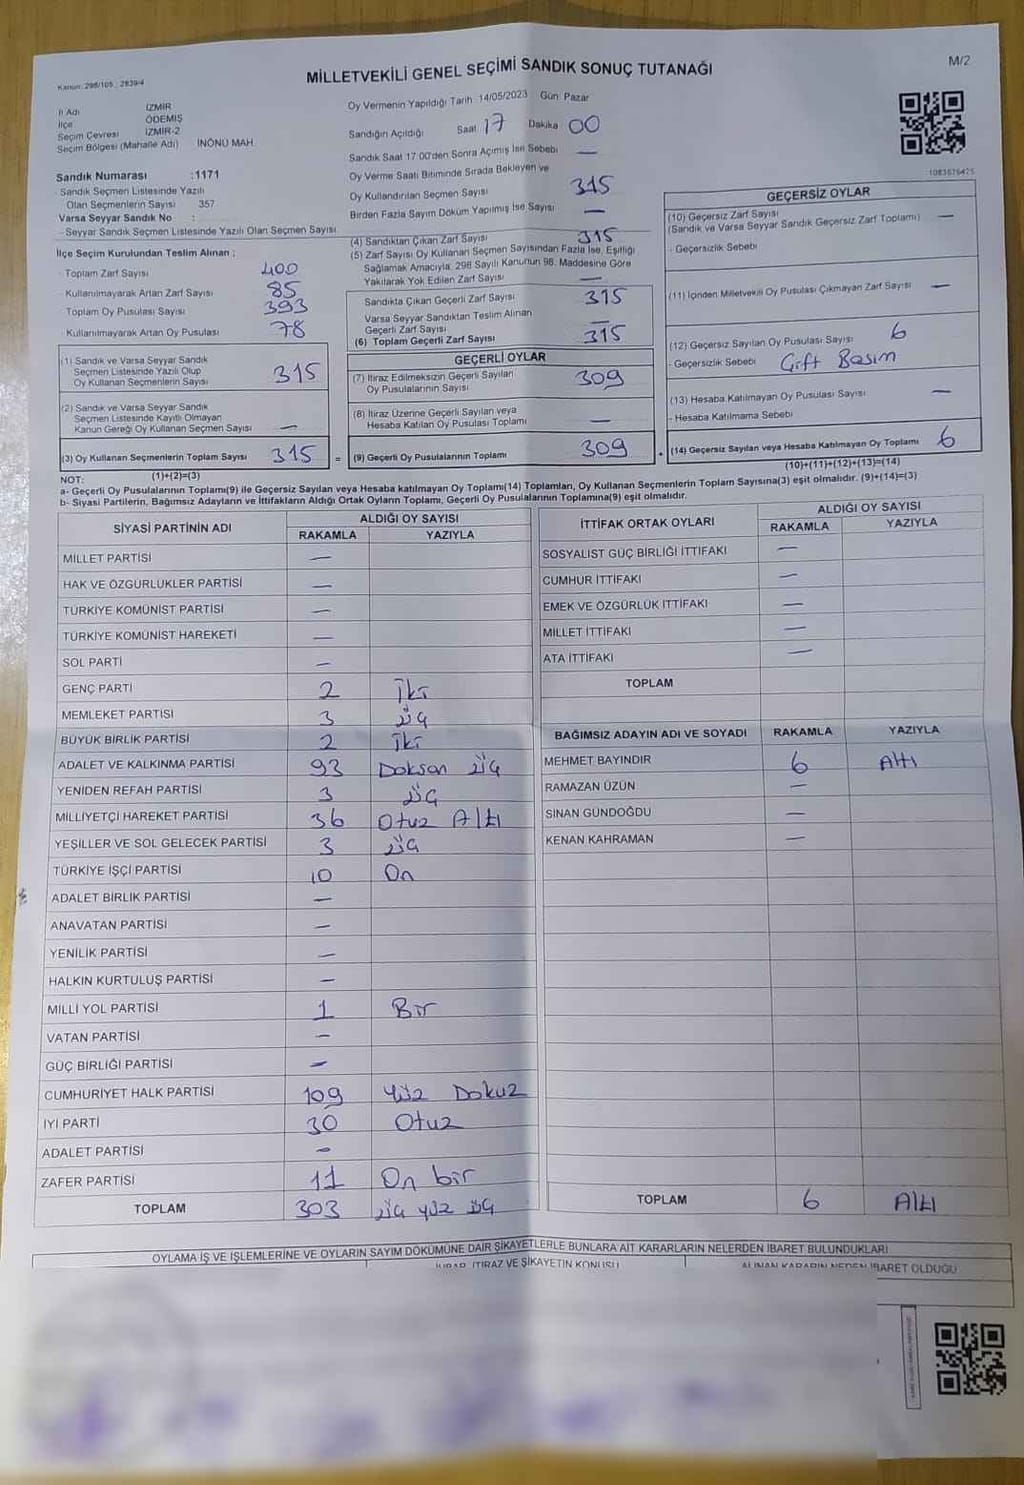 Kanun: 298/105 2839/4
MİLLETVEKİLİ GENEL SEÇİMİ SANDIK SONUÇ TUTANAĞI
M/2
İl Adı İZMİR
İlçe ÖDEMİŞ
Seçim Çevresi İZMİR-2
Seçim Bölgesi (Mahalle Adı) İNÖNÜ MAH
Sandık Numarası :1171
Sandık Seçmen Listesinde Yazılı
Olan Seçmenlerin Sayısı 357
Varsa Seyyar Sandık No :
- Seyyar Sandık Seçmen Listesinde Yazılı Olan Seçmen Sayısı
İlçe Seçim Kurulundan Teslim Alınan ;
- Toplam Zarf Sayısı 400
- Kullanılmayarak Artan Zarf Sayısı 85
- Toplam Oy Pusulası Sayısı 393
- Kullanılmayarak Artan Oy Pusulası 78
(1) Sandık ve Varsa Seyyar Sandık
Seçmen Listesinde Yazılı Olup
Oy Kullanan Seçmenlerin Sayısı 315
(2) Sandık ve Varsa Seyyar Sandık
Seçmen Listesinde Kayıtlı Olmayan
Kanun Gereği Oy Kullanan Seçmen Sayısı —
(3) Oy Kullanan Seçmenlerin Toplam Sayısı 315 =
Oy Vermenin Yapıldığı Tarih 14/05/2023 Gün Pazar
Sandığın Açıldığı Saat 17 Dakika 00
Sandık Saat 17:00'den Sonra Açılmış İse Sebebi —
Oy Verme Saati Bitiminde Sırada Bekleyen ve
Oy Kullandırılan Seçmen Sayısı 315
Birden Fazla Sayım Döküm Yapılmış İse Sayısı —
(4) Sandıktan Çıkan Zarf Sayısı 315
(5) Zarf Sayısı Oy Kullanan Seçmen Sayısından Fazla İse, Eşitliği
Sağlamak Amacıyla, 298 Sayılı Kanunun 98. Maddesine Göre
Yakılarak Yok Edilen Zarf Sayısı —
Sandıkta Çıkan Geçerli Zarf Sayısı 315
Varsa Seyyar Sandıktan Teslim Alınan
Geçerli Zarf Sayısı —
(6) Toplam Geçerli Zarf Sayısı 315
GEÇERLİ OYLAR
(7) İtiraz Edilmeksizin Geçerli Sayılan
Oy Pusulalarının Sayısı 309
(8) İtiraz Üzerine Geçerli Sayılan veya
Hesaba Katılan Oy Pusulası Toplamı —
(9) Geçerli Oy Pusulalarının Toplamı 309 +
1083676475
GEÇERSİZ OYLAR
(10) Geçersiz Zarf Sayısı —
(Sandık ve Varsa Seyyar Sandık Geçersiz Zarf Toplamı)
- Geçersizlik Sebebi
(11) İçinden Milletvekili Oy Pusulası Çıkmayan Zarf Sayısı —
(12) Geçersiz Sayılan Oy Pusulası Sayısı 6
- Geçersizlik Sebebi Çift Basım
(13) Hesaba Katılmayan Oy Pusulası Sayısı —
- Hesaba Katılmama Sebebi
(14) Geçersiz Sayılan veya Hesaba Katılmayan Oy Toplamı 6
NOT: (1)+(2)=(3) (10)+(11)+(12)+(13)=(14)
a- Geçerli Oy Pusulalarının Toplamı(9) ile Geçersiz Sayılan veya Hesaba katılmayan Oy Toplamı(14) Toplamları, Oy Kullanan Seçmenlerin Toplam Sayısına(3) eşit olmalıdır. (9)+(14)=(3)
b- Siyasi Partilerin, Bağımsız Adayların ve İttifakların Aldığı Ortak Oyların Toplamı, Geçerli Oy Pusulalarının Toplamına(9) eşit olmalıdır.
SİYASİ PARTİNİN ADI ALDIĞI OY SAYISI
RAKAMLA YAZIYLA
MİLLET PARTİSİ —
HAK VE ÖZGÜRLÜKLER PARTİSİ —
TÜRKİYE KOMÜNİST PARTİSİ —
TÜRKİYE KOMÜNİST HAREKETİ —
SOL PARTİ —
GENÇ PARTİ 2 İki
MEMLEKET PARTİSİ 3 üç
BÜYÜK BİRLİK PARTİSİ 2 İki
ADALET VE KALKINMA PARTİSİ 93 Doksan üç
YENİDEN REFAH PARTİSİ 3 üç
MİLLİYETÇİ HAREKET PARTİSİ 36 Otuz Altı
YEŞİLLER VE SOL GELECEK PARTİSİ 3 üç
TÜRKİYE İŞÇİ PARTİSİ 10 On
ADALET BİRLİK PARTİSİ —
ANAVATAN PARTİSİ —
YENİLİK PARTİSİ —
HALKIN KURTULUŞ PARTİSİ —
MİLLİ YOL PARTİSİ 1 Bir
VATAN PARTİSİ —
GÜÇ BİRLİĞİ PARTİSİ —
CUMHURİYET HALK PARTİSİ 109 Yüz Dokuz
İYİ PARTİ 30 Otuz
ADALET PARTİSİ —
ZAFER PARTİSİ 11 On bir
TOPLAM 303 üç yüz üç
İTTİFAK ORTAK OYLARI ALDIĞI OY SAYISI
RAKAMLA YAZIYLA
SOSYALİST GÜÇ BİRLİĞİ İTTİFAKI —
CUMHUR İTTİFAKI —
EMEK VE ÖZGÜRLÜK İTTİFAKI —
MİLLET İTTİFAKI —
ATA İTTİFAKI —
TOPLAM
BAĞIMSIZ ADAYIN ADI VE SOYADI RAKAMLA YAZIYLA
MEHMET BAYINDIR 6 Altı
RAMAZAN ÜZÜN —
SİNAN GÜNDOĞDU —
KENAN KAHRAMAN —
TOPLAM 6 Altı
OYLAMA İŞ VE İŞLEMLERİNE VE OYLARIN SAYIM DÖKÜMÜNE DAİR ŞİKAYETLERLE BUNLARA AİT KARARLARIN NELERDEN İBARET BULUNDUKLARI
İTİRAZ VE ŞİKAYETİN KONUSU ALINAN KARARIN NEDEN İBARET OLDUĞU